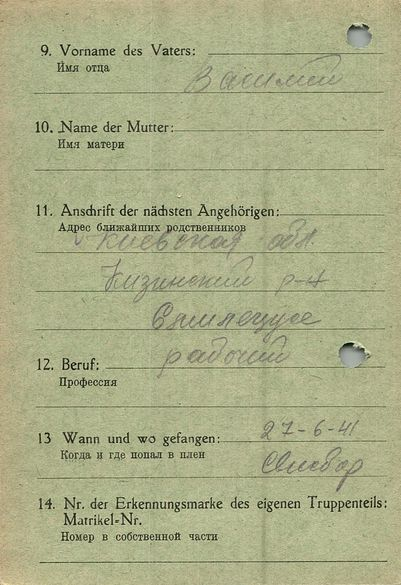 9. Vorname des Vaters:
Имя отца
Василий
10. Name der Mutter:
Имя матери
11. Anschrift der nächsten Angehörigen:
Адрес ближайших родственников
Киевская обл.
р-н
12. Beruf:
рабочий
Профессия
13 Wann und wo gefangen:
27-6-41
Когда и где попал в плен
14. Nr. der Erkennungsmarke des eigenen Truppenteils:
Matrikel-Nr.
Номер в собственной части